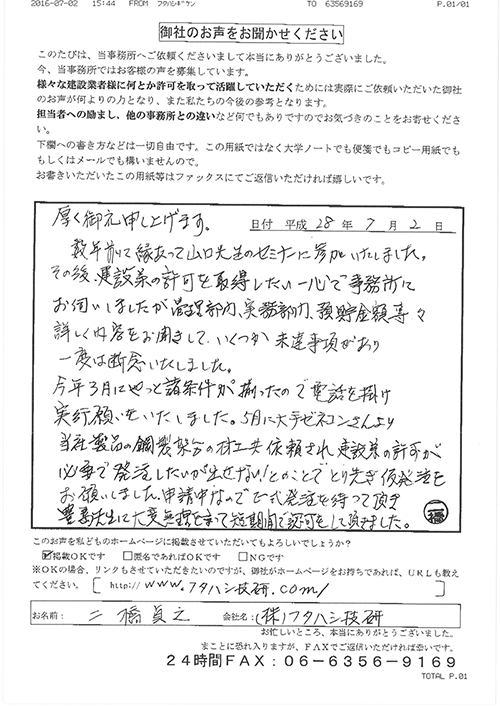 2016-07-02 15:44 FROM フタハシギケン TO 63569169 P.01/01
御社のお声をお聞かせください
このたびは、当事務所へご依頼くださいまして本当にありがとうございました。
今、当事務所ではお客様の声を募集しています。
様々な建設業者様に何とか許可を取って活躍していただくためには実際にご依頼いただいた御社
のお声が何よりの力となり、また私たちの今後の参考となります。
担当者への励まし、他の事務所との違いなど何でもありですのでお気づきのことをお寄せくださ
い。
下欄への書き方などは一切自由です。この用紙ではなく大学ノートでも便箋でもコピー用紙でも
もしくはメールでも構いませんので。
お書きいただいたこの用紙等はファックスにてご返信いただければ嬉しいです。
厚く御礼申し上げます。 日付 平成 28 年 7 月 2 日
数年前に縁あって山口先生のセミナーに参加いたしました。
その後、建設業の許可を取得したい一心で事務所に
お伺いしましたが管理部門、実務部門、預貯金額等々
詳しく内容をお聞きして、いくつか未達事項があり
一度は断念いたしました。
今年3月にやっと諸条件が揃ったので電話を掛け
実行願いをいたしました。5月に大手ゼネコンさんより
当社製品の鋼製架台の材工共依頼され建設業の許可が
必要で発注したいが出せない!とのことでとり先ず仮発注を
お願いしました。申請中なので正式発注を待って頂き
先生に大変無理を言って短期間で認可をして頂きました。
二橋
このお声を私どものホームページに掲載させていただいてもよろしいでしょうか?
☑掲載OKです □匿名であればOKです □NGです
※OKの場合、リンクもさせていただきたいのですが、御社がホームページをお持ちであれば、URLも教え
てください。 [ http://www.フタハシ技研.com/ ]
お名前: 二橋貞之 会社名: (株)フタハシ技研
お忙しいところ、本当にありがとうございました。
まことに恐れ入りますが、FAXでご返信いただければ幸いです。
24時間FAX:06-6356-9169
TOTAL P.01